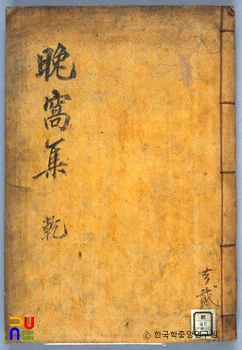 晩窩集 乾
共貳
PUNC
©한국학중앙연구원